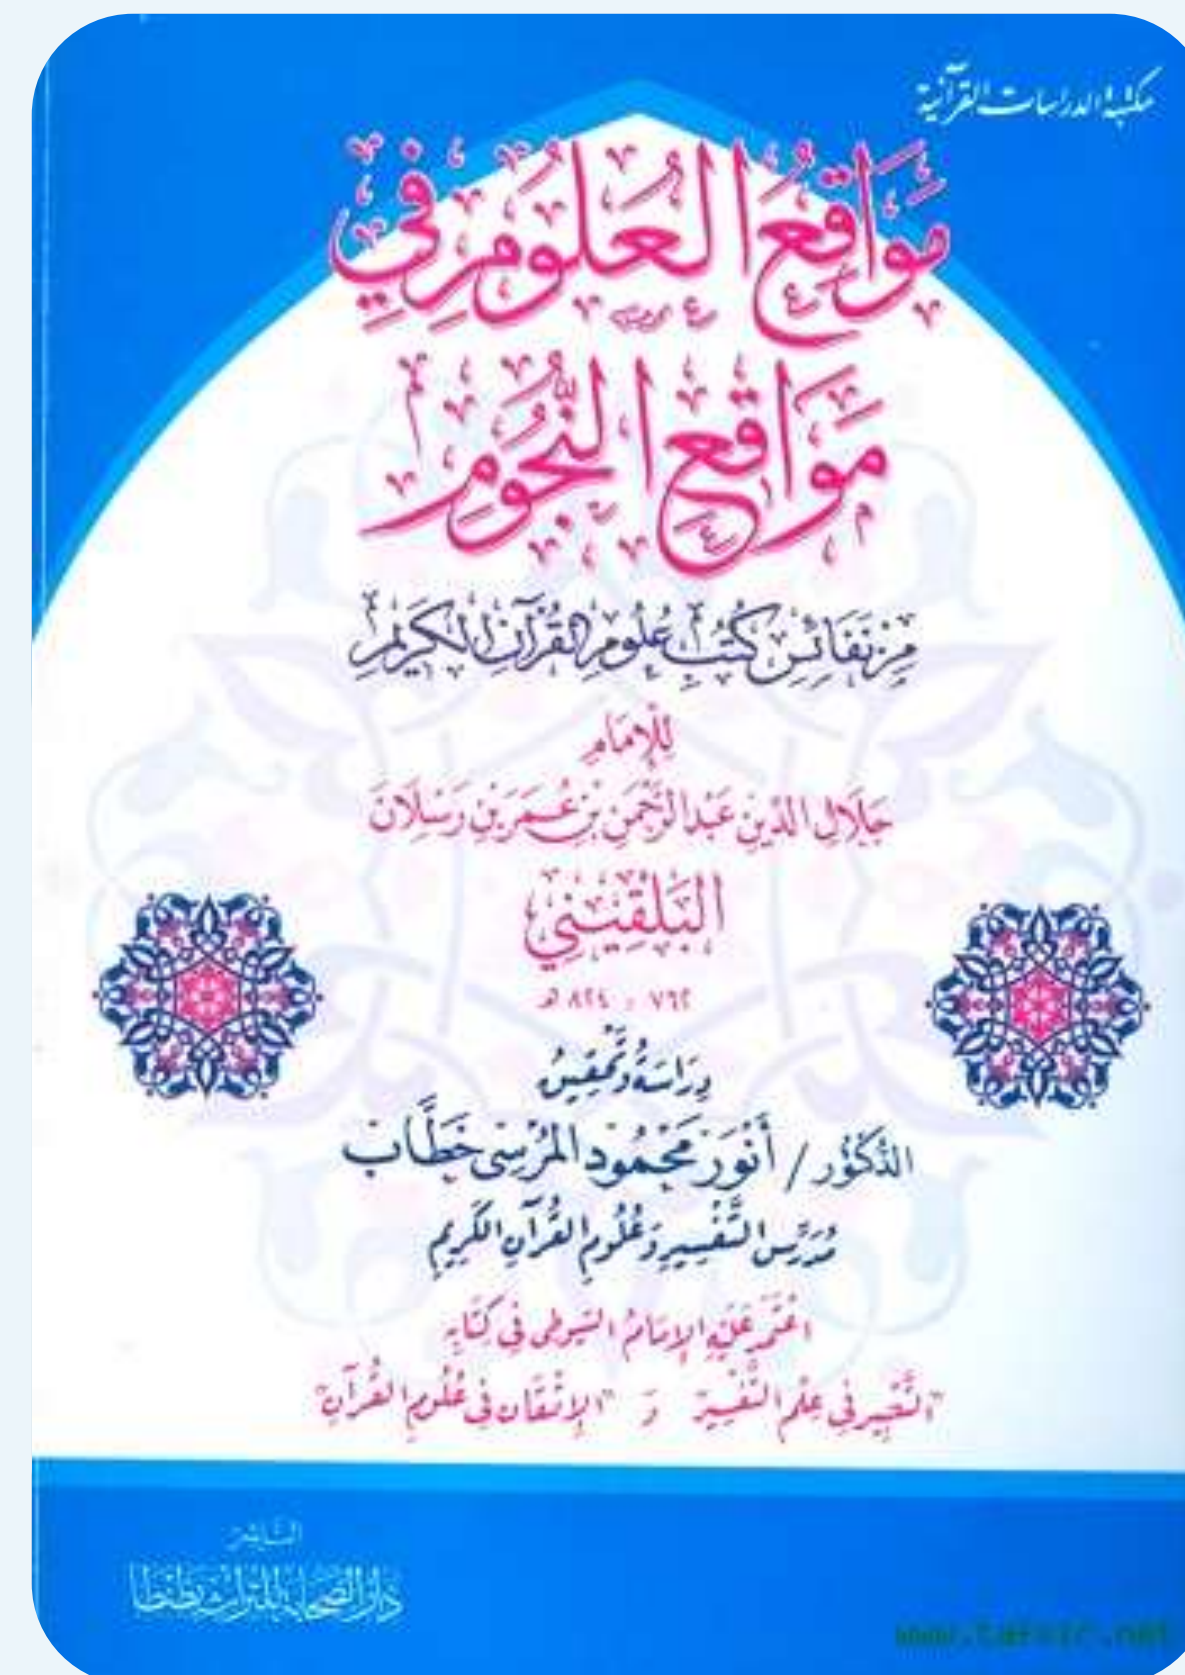 مكتبة الدراسات القرآنية
مَوَاقِعُ العُلُومِ فِي
مَوَاقِعِ النُّجُومِ
مِنْ نَفَائِسِ كُتُبِ عُلُومِ القُرْآنِ الكَرِيمِ
لِلْإِمَامِ
جَلَالِ الدِّينِ عَبْدِ الرَّحْمَنِ بْنِ عُمَرَ بْنِ رَسْلَانَ
البُلْقِينِي
٧٦٣ - ٨٢٤ هـ
دِرَاسَةُ وَتَحْقِيقُ
الدُّكْتُور / أَنْوَر مَحْمُود المُرْسِي خَطَّاب
مُدَرِّس التَّفْسِير وَعُلُومِ القُرْآنِ الكَرِيمِ
اعْتَمَدَ عَلَيْهِ الإِمَامُ السُّيُوطِي فِي كِتَابِهِ
"التَّحْبِير فِي عِلْمِ التَّفْسِير" وَ "الإِتْقَان فِي عُلُومِ القُرْآنِ"
الناشر
دَارُ الصَّحَابَةِ لِلتُّرَاثِ بِطَنْطَا